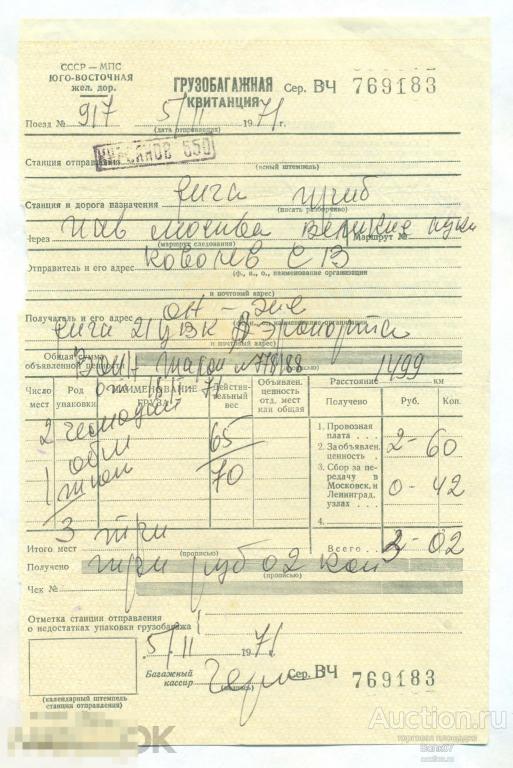 СССР — МПС
ЮГО-ВОСТОЧНАЯ
жел. дор.
ГРУЗОБАГАЖНАЯ
КВИТАНЦИЯ
Сер. ВЧ 769183
Поезд № 917 5/II 1971 г.
(дата отправления)
Станция отправления 550
(ясный штемпель)
Станция и дорога назначения Рига приб
(писать разборчиво)
Через Москва Великие Луки Маршрут №
(маршрут следования)
Отправитель и его адрес С В
(ф., и., о., или наименование организации
и почтовый адрес)
Получатель и его адрес он-же
(ф., и., о., или наименование организации
Рига 21
и почтовый адрес)
Общая сумма
объявленной ценности № 778188
Расстояние 1499 км
Число мест
Род упаковки
НАИМЕНОВАНИЕ ГРУЗА
Действительный вес
Объявлен. ценность отд. мест или общая
Получено
Руб.
Коп.
2 65
1 70
1. Провозная плата . . . 2-60
2. За объявлен. ценность .
3. Сбор за передачу в Московск. и Ленинград. узлах . . . 0-42
4.
Итого мест 3 три
(прописью)
Всего . . 3-02
Получено три руб 02 коп
(прописью)
Чек №
Отметка станции отправления
о недостатках упаковки грузобагажа
5/II 1971 г.
Багажный
кассир
(подпись)
Сер. ВЧ 769183
(календарный штемпель
станции отправления)
Auction.ru
торговая площадка
auction.ru